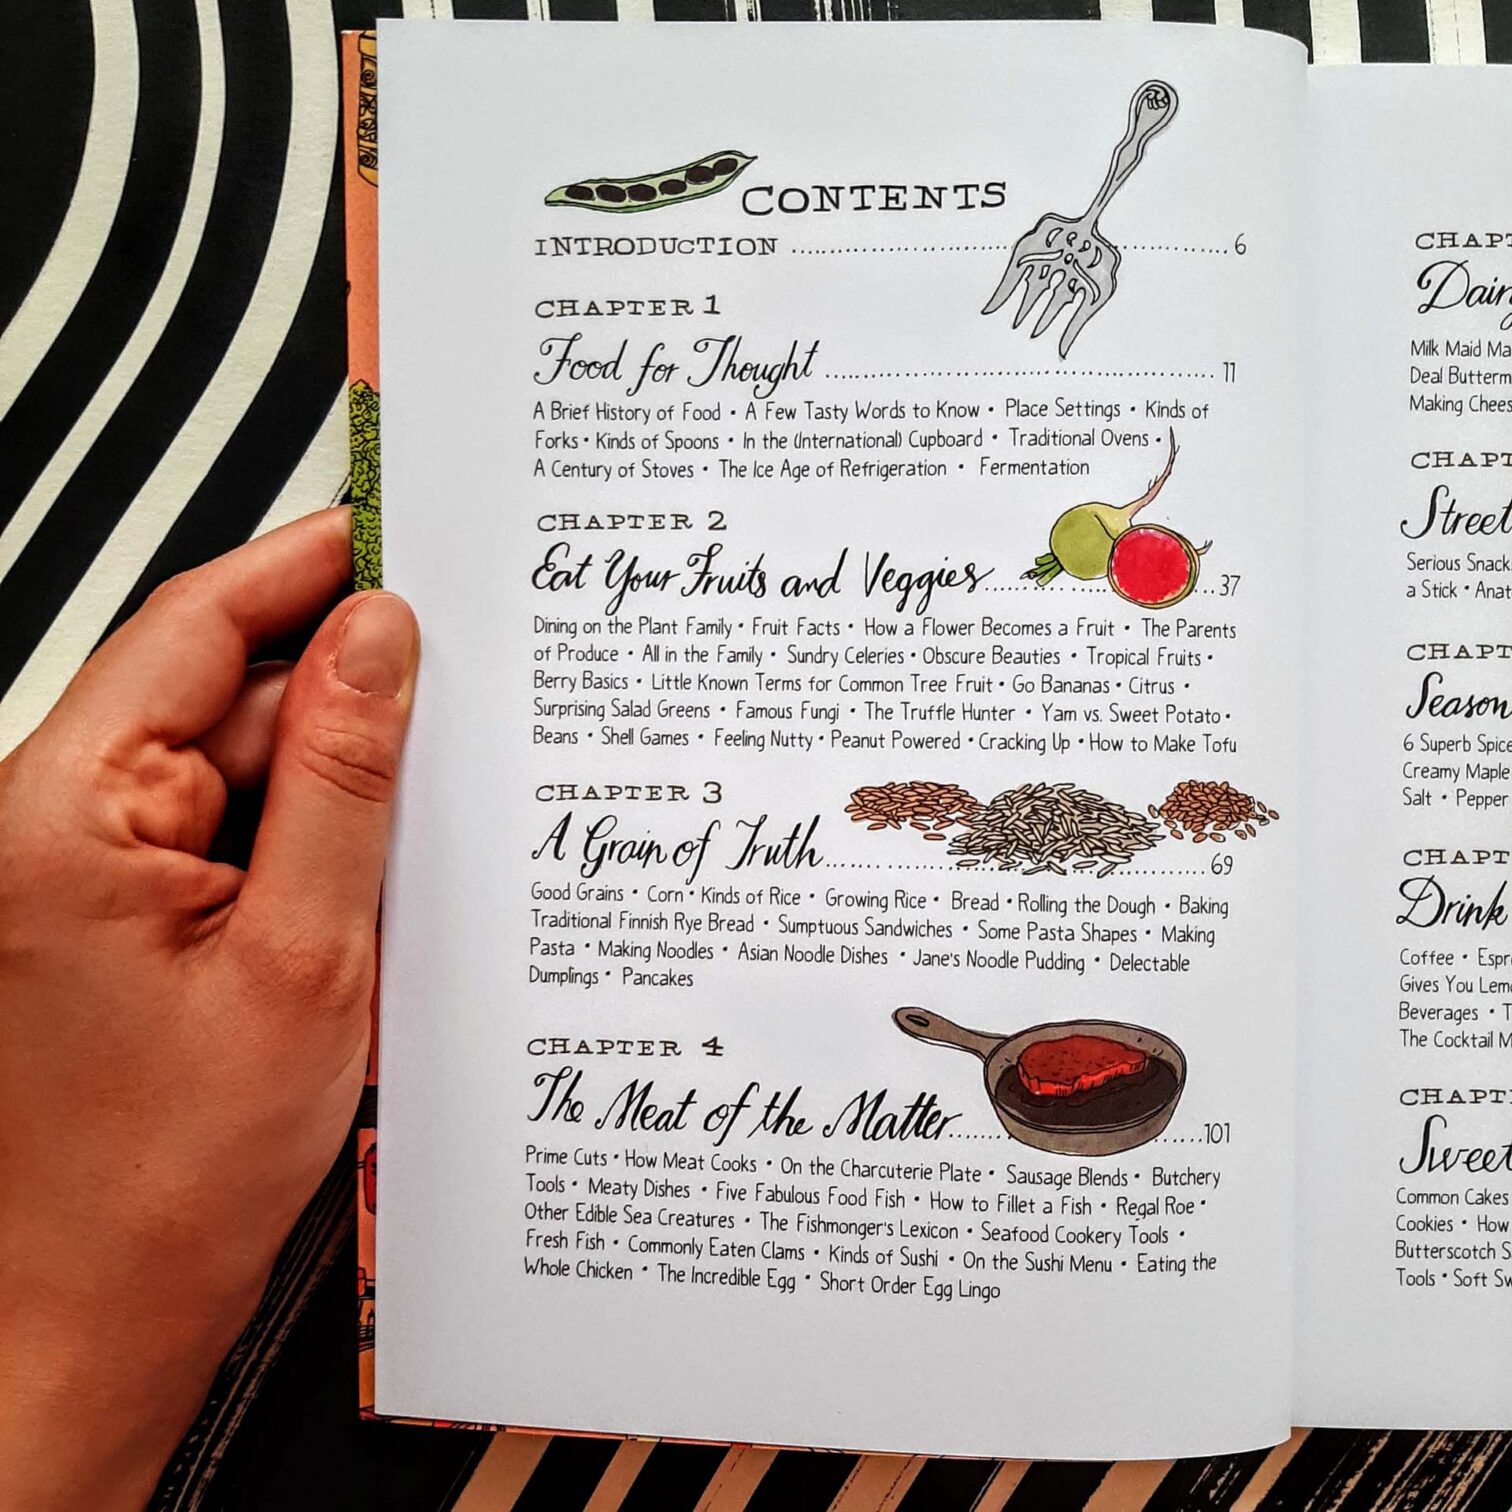 CONTENTS
INTRODUCTION 6
CHAPTER 1
Food for Thought 11
A Brief History of Food • A Few Tasty Words to Know • Place Settings • Kinds of
Forks • Kinds of Spoons • In the (International) Cupboard • Traditional Ovens •
A Century of Stoves • The Ice Age of Refrigeration • Fermentation
CHAPTER 2
Eat Your Fruits and Veggies 37
Dining on the Plant Family • Fruit Facts • How a Flower Becomes a Fruit • The Parents
of Produce • All in the Family • Sundry Celeries • Obscure Beauties • Tropical Fruits •
Berry Basics • Little Known Terms for Common Tree Fruit • Go Bananas • Citrus •
Surprising Salad Greens • Famous Fungi • The Truffle Hunter • Yam vs. Sweet Potato •
Beans • Shell Games • Feeling Nutty • Peanut Powered • Cracking Up • How to Make Tofu
CHAPTER 3
A Grain of Truth 69
Good Grains • Corn • Kinds of Rice • Growing Rice • Bread • Rolling the Dough • Baking
Traditional Finnish Rye Bread • Sumptuous Sandwiches • Some Pasta Shapes • Making
Pasta • Making Noodles • Asian Noodle Dishes • Jane's Noodle Pudding • Delectable
Dumplings • Pancakes
CHAPTER 4
The Meat of the Matter 101
Prime Cuts • How Meat Cooks • On the Charcuterie Plate • Sausage Blends • Butchery
Tools • Meaty Dishes • Five Fabulous Food Fish • How to Fillet a Fish • Regal Roe •
Other Edible Sea Creatures • The Fishmonger's Lexicon • Seafood Cookery Tools •
Fresh Fish • Commonly Eaten Clams • Kinds of Sushi • On the Sushi Menu • Eating the
Whole Chicken • The Incredible Egg • Short Order Egg Lingo
Milk Maid
Deal
Making
Street
Serious
a Stick •
6 Superb
Creamy Maple
Salt • Pepper
Drink
Coffee •
Gives You
Beverages •
The Cocktail
Sweet
Common Cakes
Cookies • How
Butterscotch
Tools • Soft